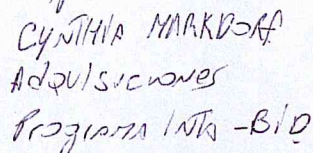 CYNTHIA MARKDORF
Adquisiciones
Programa INTA - BID